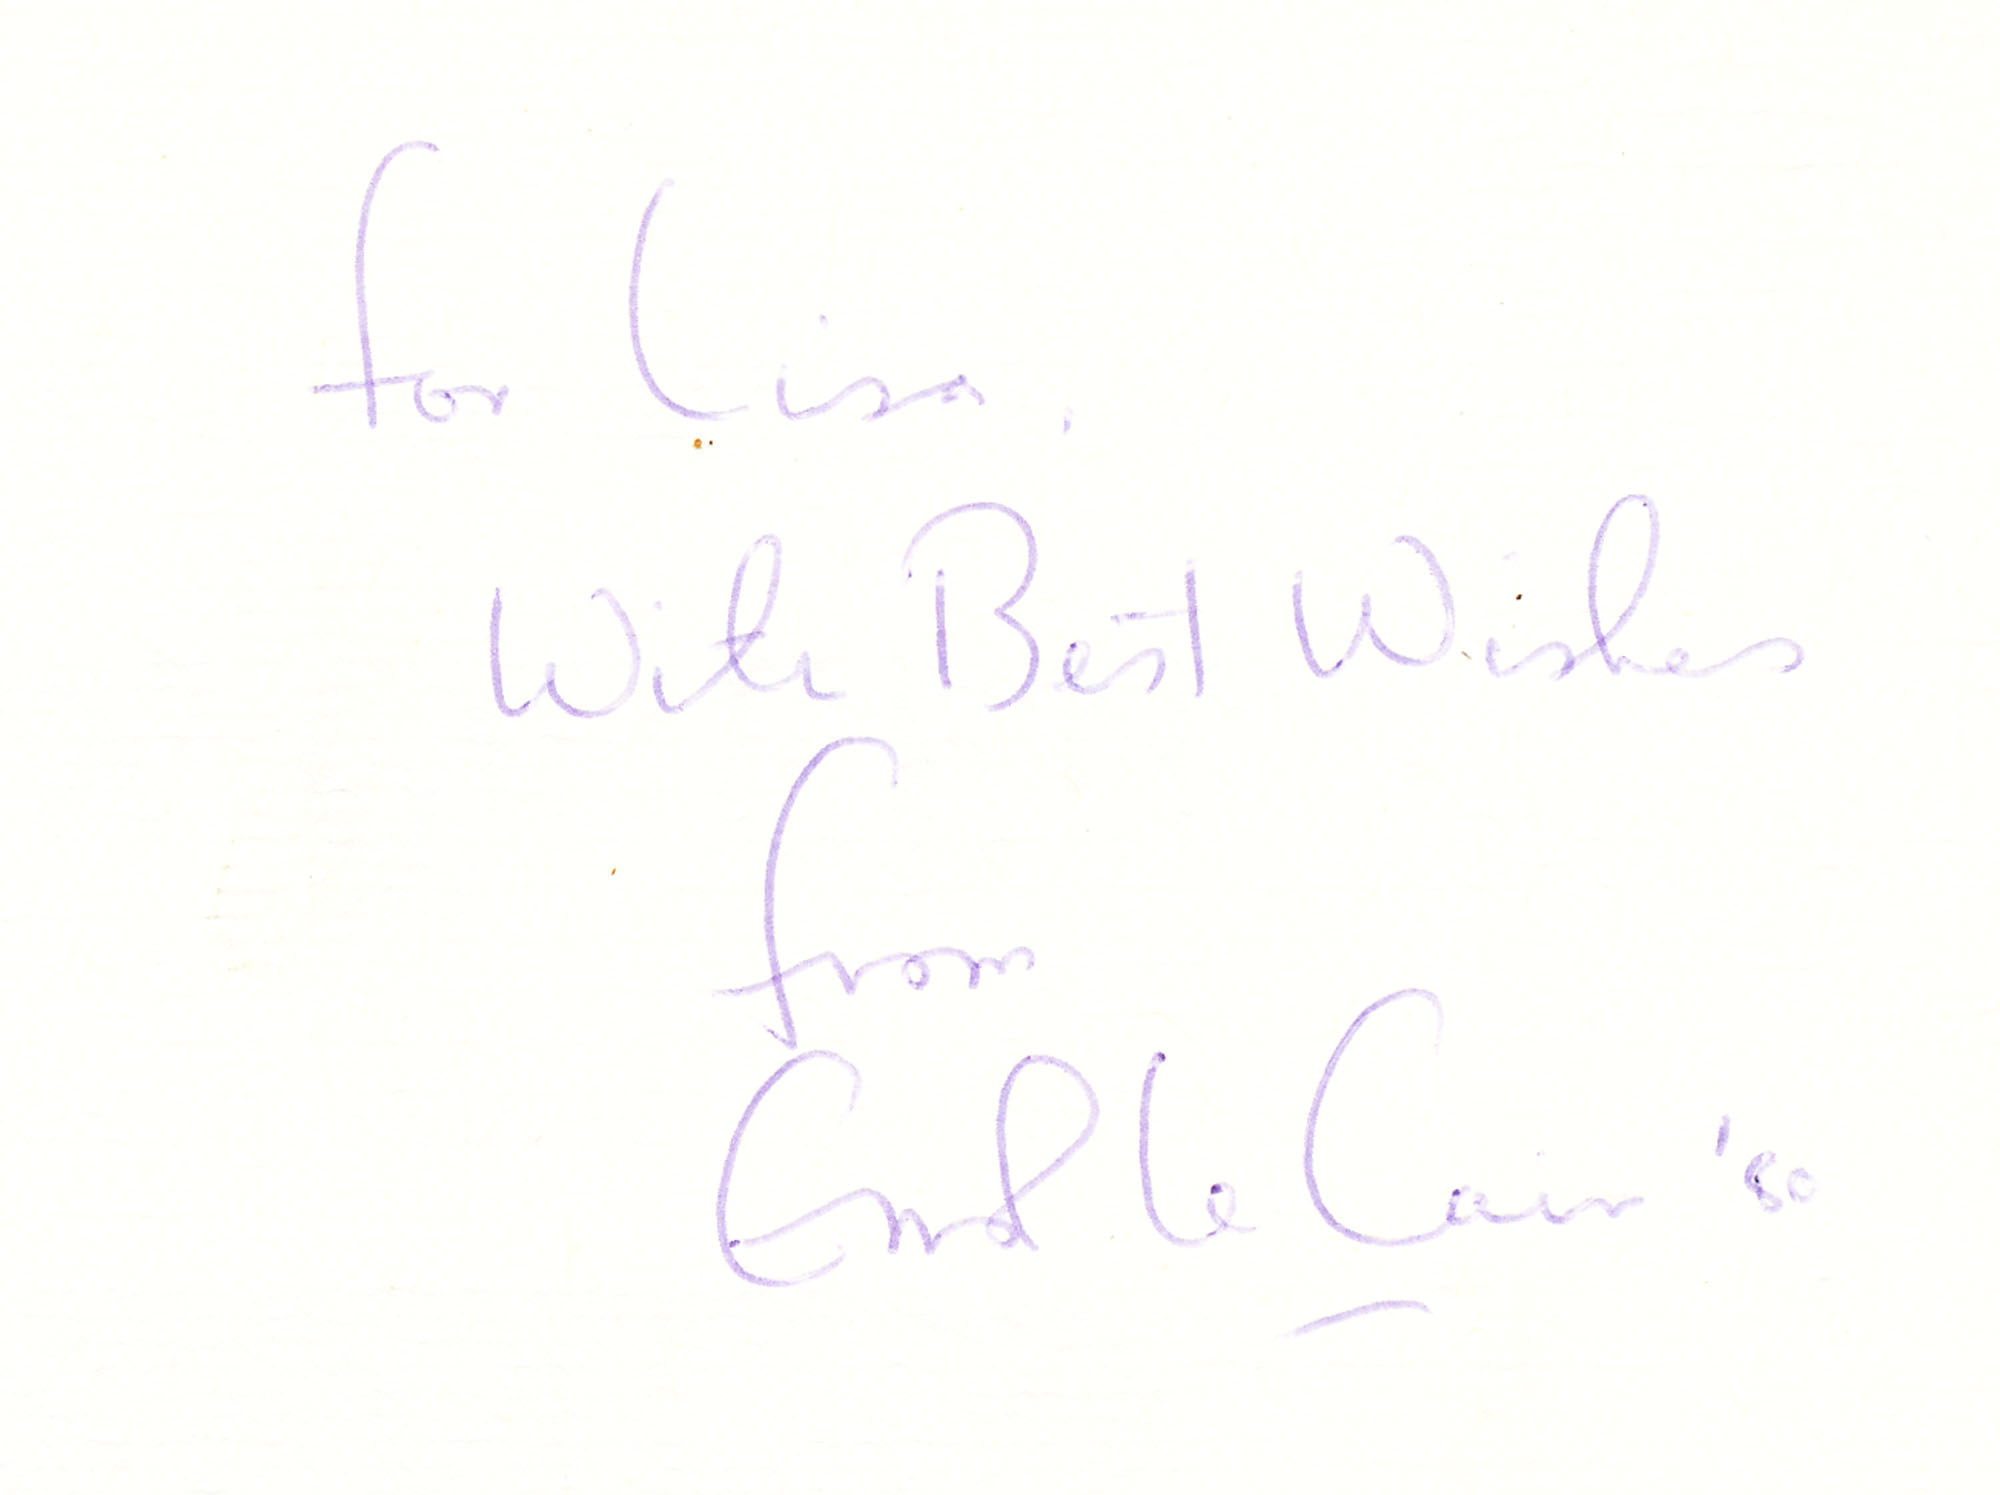 for Lisa,
With Best Wishes
from
Errol Le Cain '80